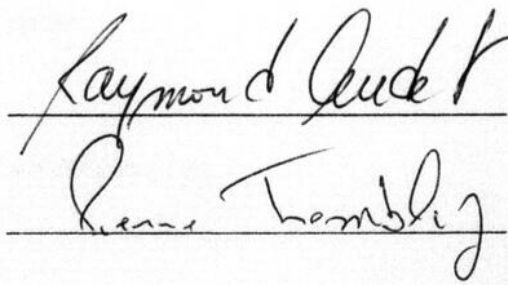 Raymond Audet
Pierre Tremblay